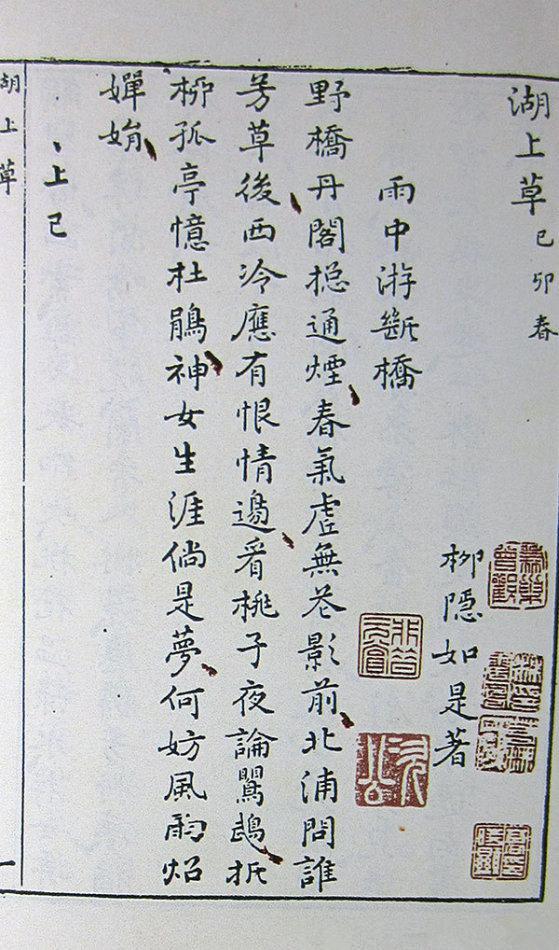 湖上草 己卯春
柳隱如是著
雨中游斷橋
野橋丹閣捴通煙春氣虛無花影前北浦問誰
芳草後西冷應有恨情邊看桃子夜論鸎鵡折
柳孤亭憶杜鵑神女生涯倘是夢何妨風雨炤
嬋娟
上巳
湖上草